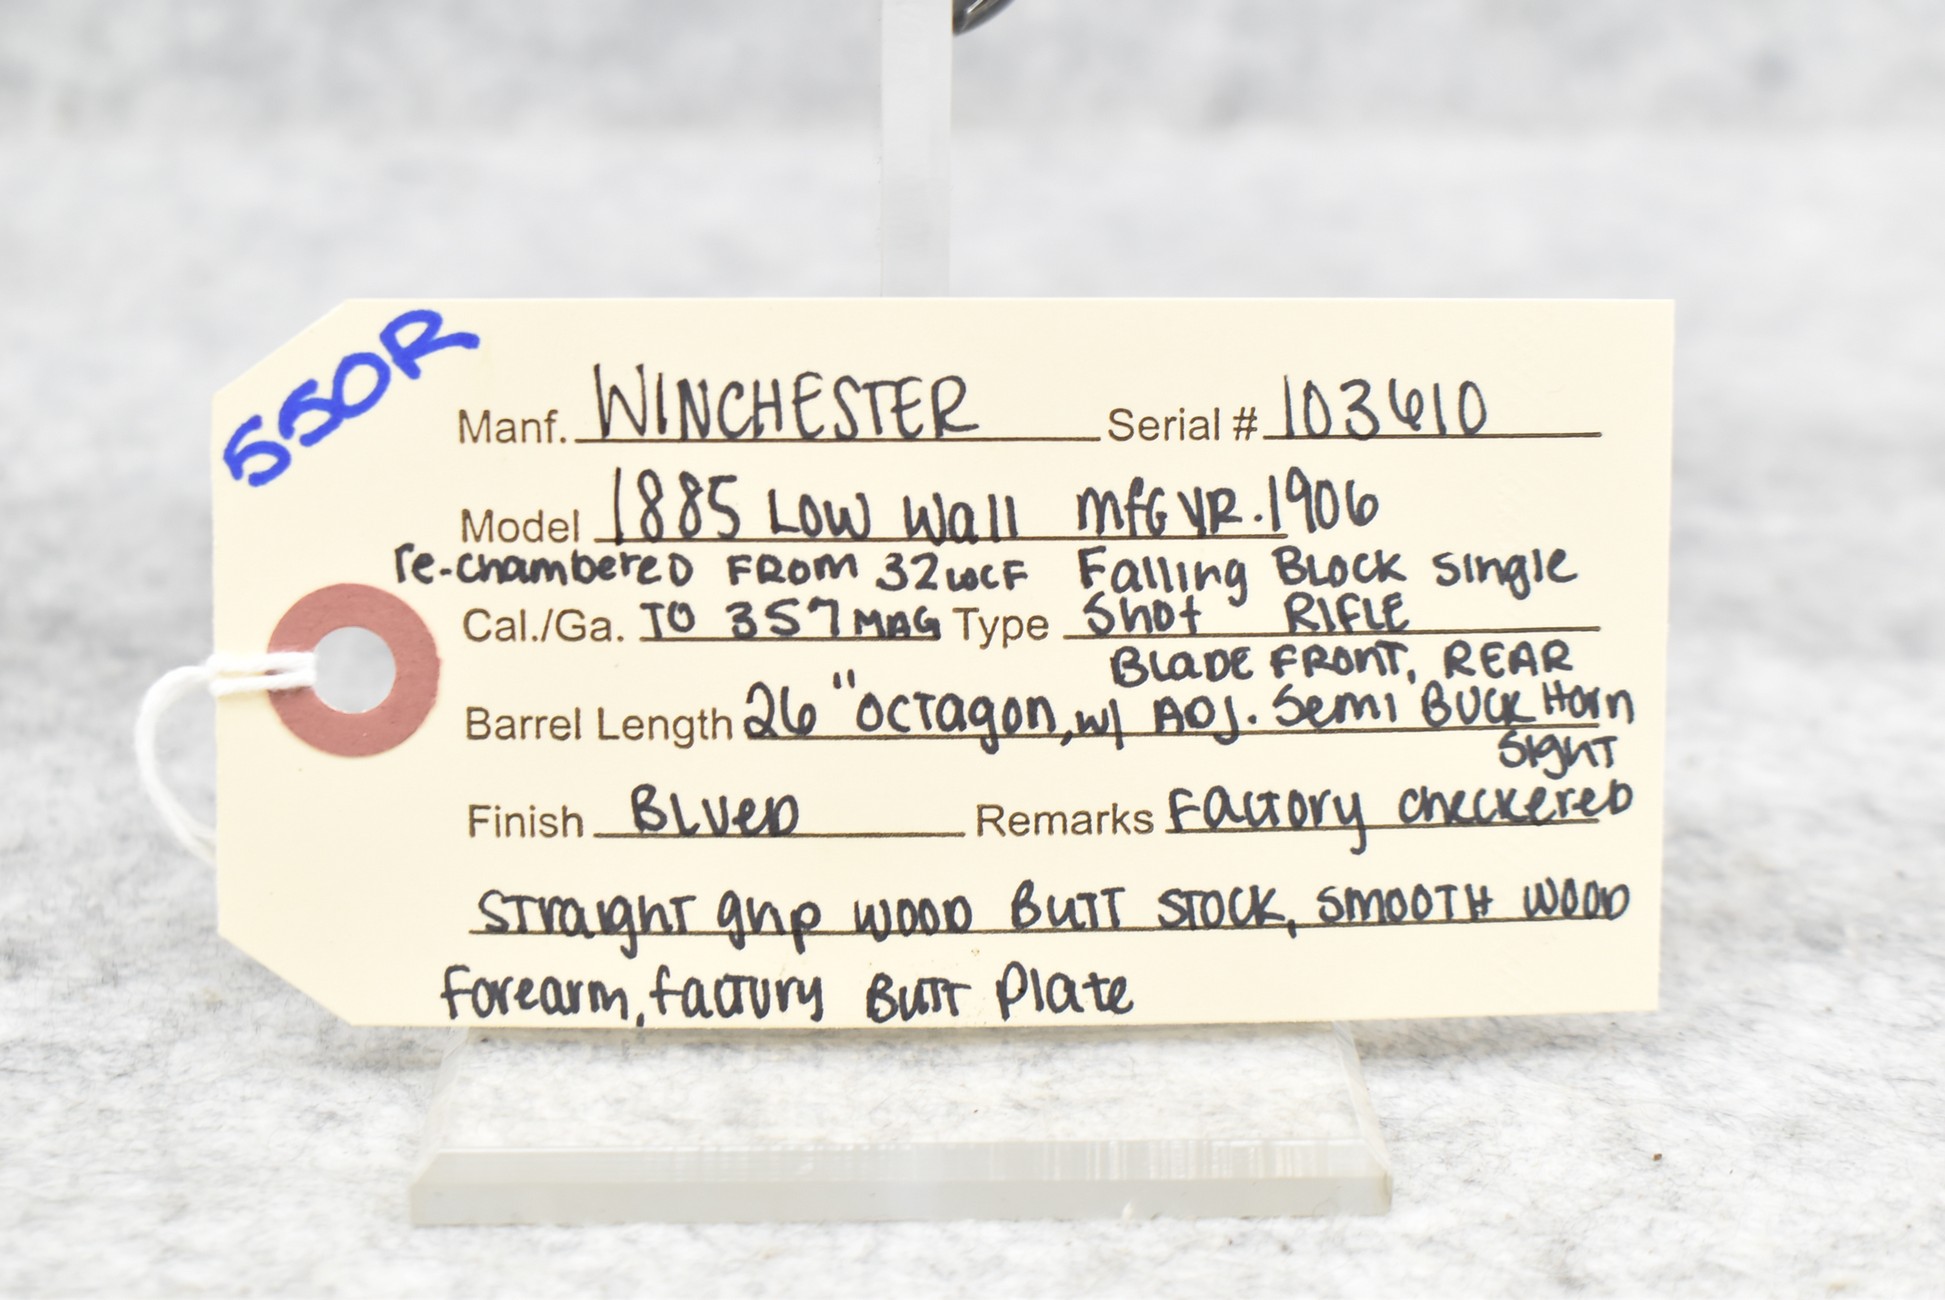 550R
Manf. WINCHESTER Serial # 103610
Model 1885 Low Wall MFG YR. 1906
re-chambered FROM 32WCF Falling Block Single
Cal./Ga. TO 357 MAG Type Shot RIFLE
Blade FRONT, REAR
Barrel Length 26" octagon, w/ ADJ. Semi BUCK Horn
Sight
Finish BLUED Remarks Factory checkered
straight grip wood Butt STOCK, SMOOTH WOOD
forearm, factory Butt Plate